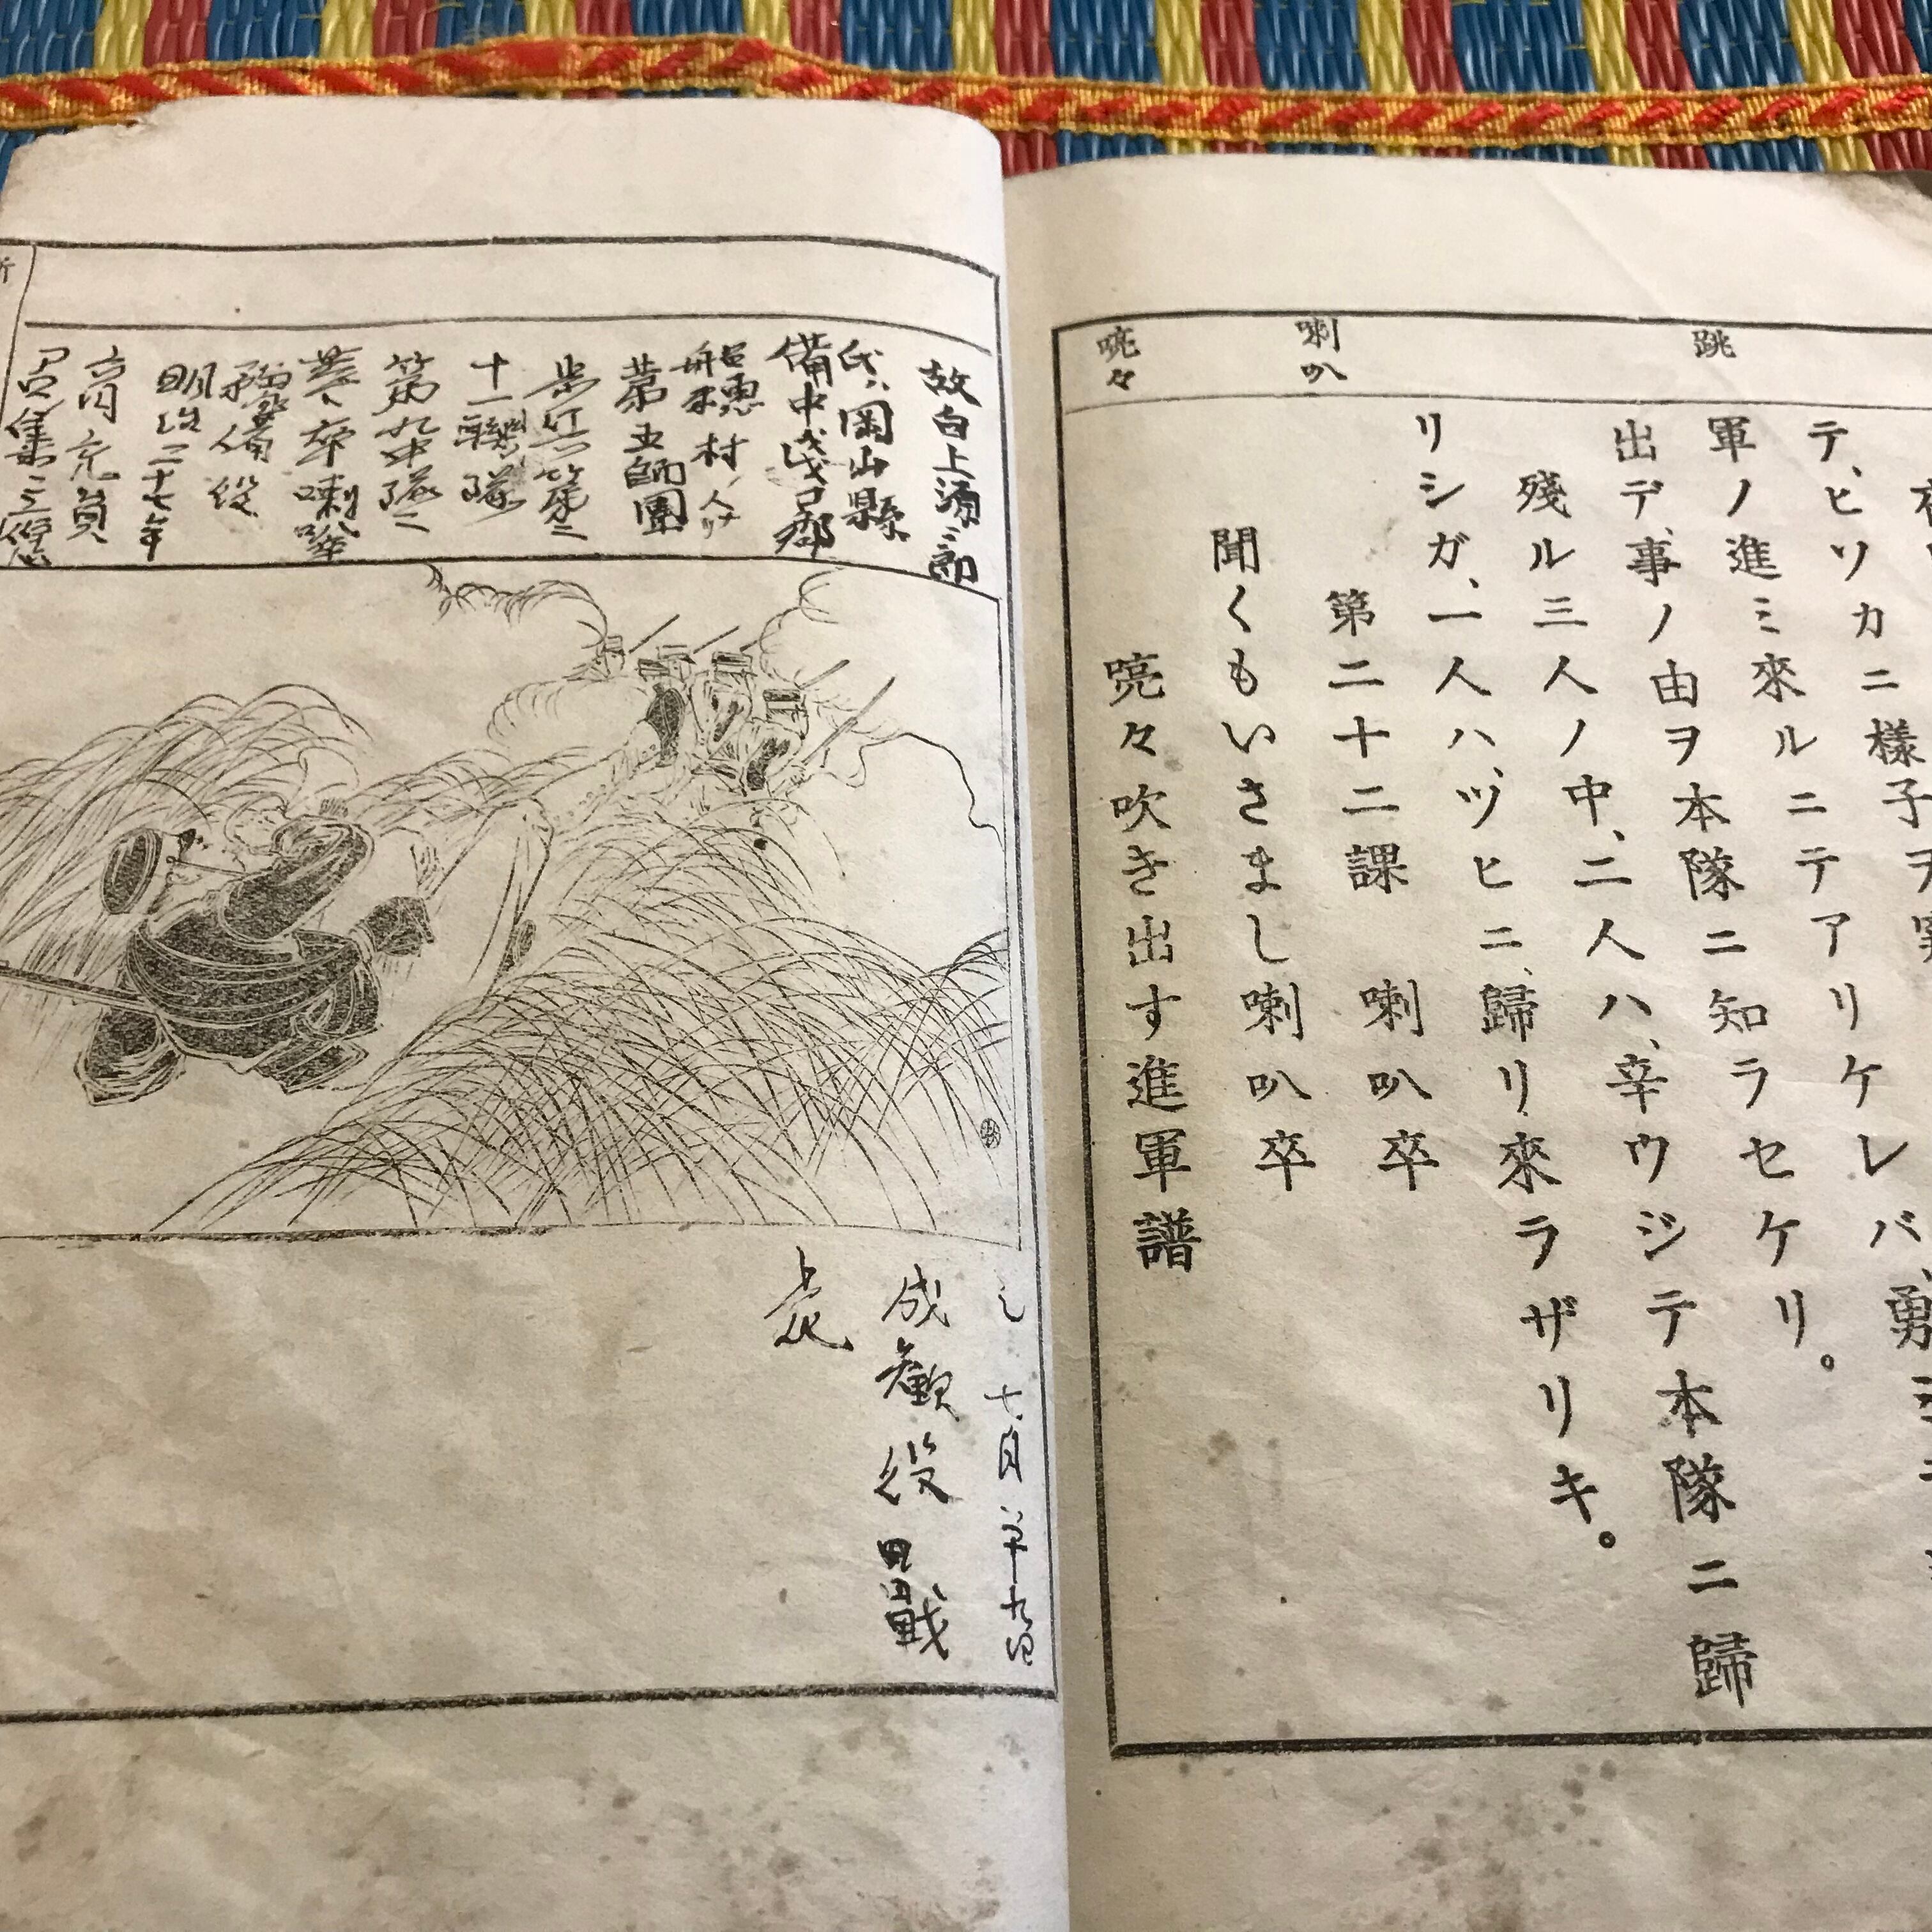 跳
喇叭
喨々
テ、ヒソカニ様子ヲ
軍ノ進ミ來ルニテアリケレバ、勇
出デ、事ノ由ヲ本隊ニ知ラセケリ。
殘ル三人ノ中、二人ハ、辛ウジテ本隊ニ歸
リシガ、一人ハ、ツヒニ、歸リ來ラザリキ。
第二十二課 喇叭卒
聞くもいさまし喇叭卒
喨々吹き出す進軍譜
故白上源二郎
氏ハ岡山縣
備中浅口郡
船穂村ノ人ナリ
第五師團
歩兵第二
十一聯隊
第九中隊ニ
豫備役
明治二十七年
充員
召集ニ應
七月
成歡役